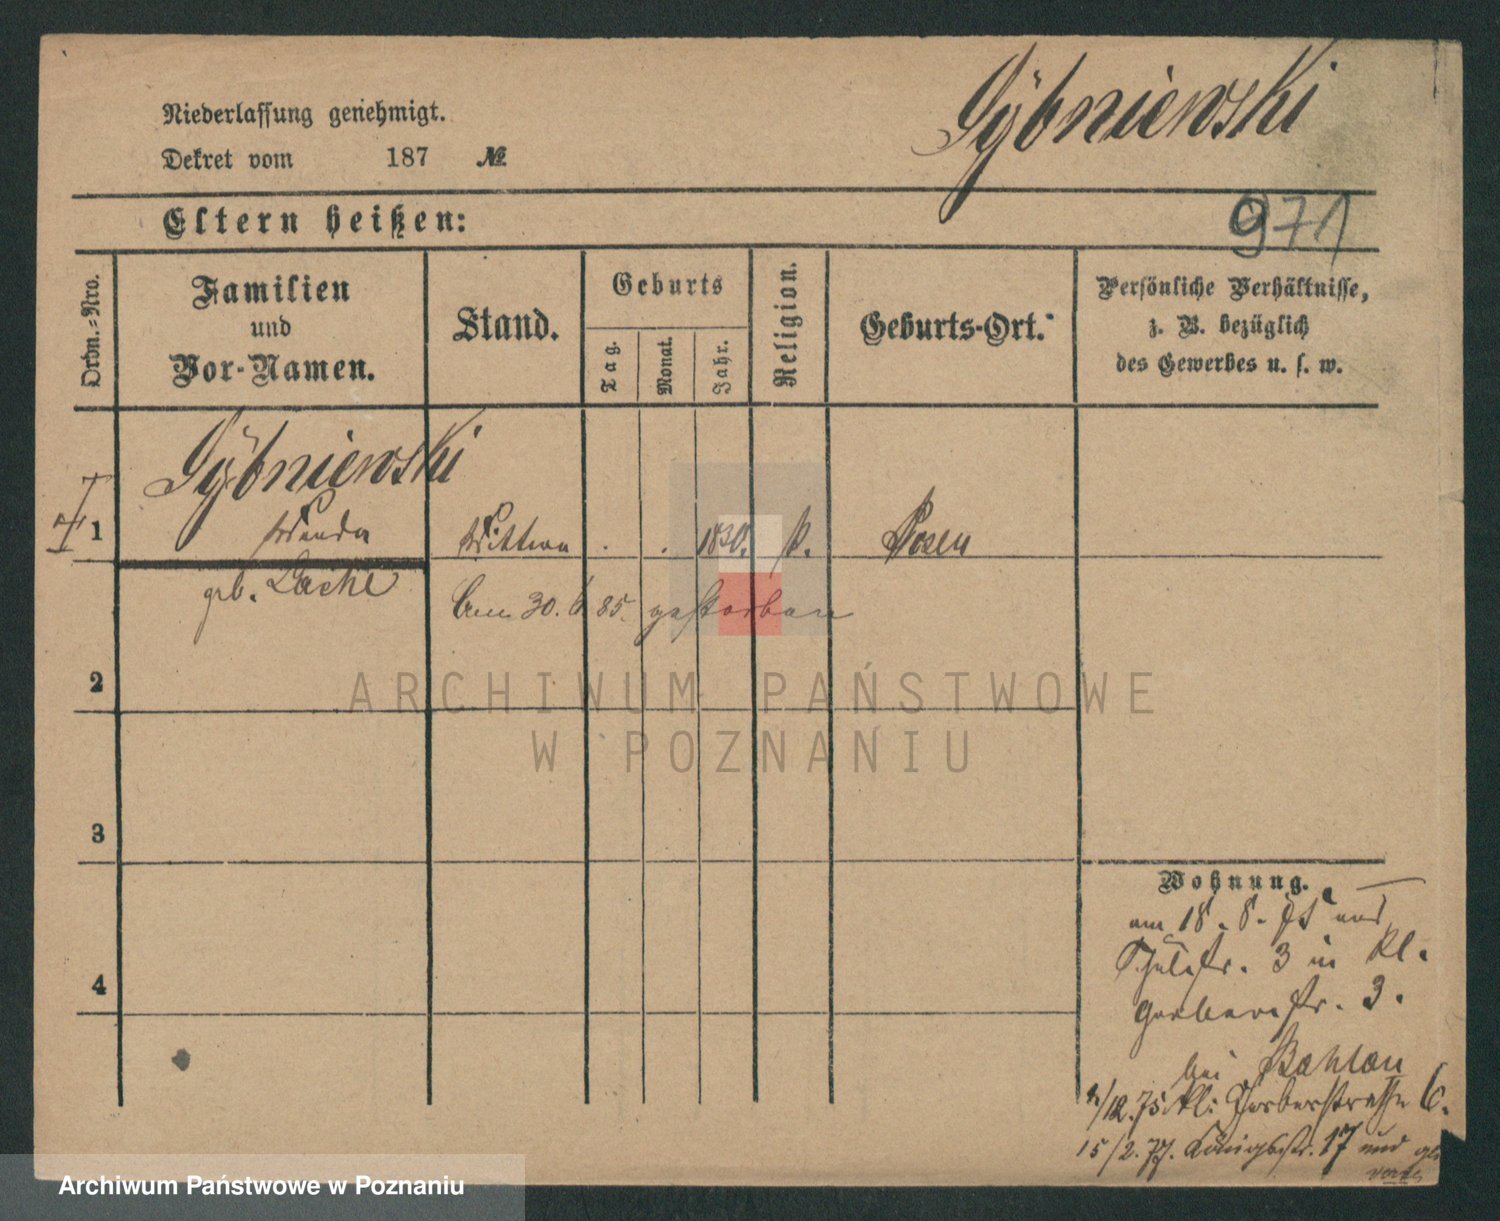 Niederlassung genehmigt.
Dekret vom 187 №
Gÿbniewski
971
Eltern heißen:
Ordn.=Nro.
Familien
und
Vor-Namen.
Stand.
Geburts
Tag.
Monat.
Jahr.
Religion.
Geburts-Ort.
Persönliche Verhältnisse,
z. B. bezüglich
des Gewerbes u. s. w.
Gÿbniewski
1 Wanda Wittwe . . 1830. k. Posen
geb.
Am 30. 6 85. gestorben
2
3
4
Wohnung.
am 18. 8. 75 aus
Schulstr. 3 in Kl.
Gerberstr. 3.
bei
/12.75 Kl: Gerberstraße 6.
15/2. 77. Königsstr. 17 und
ARCHIWUM PAŃSTWOWE
W POZNANIU
Archiwum Państwowe w Poznaniu